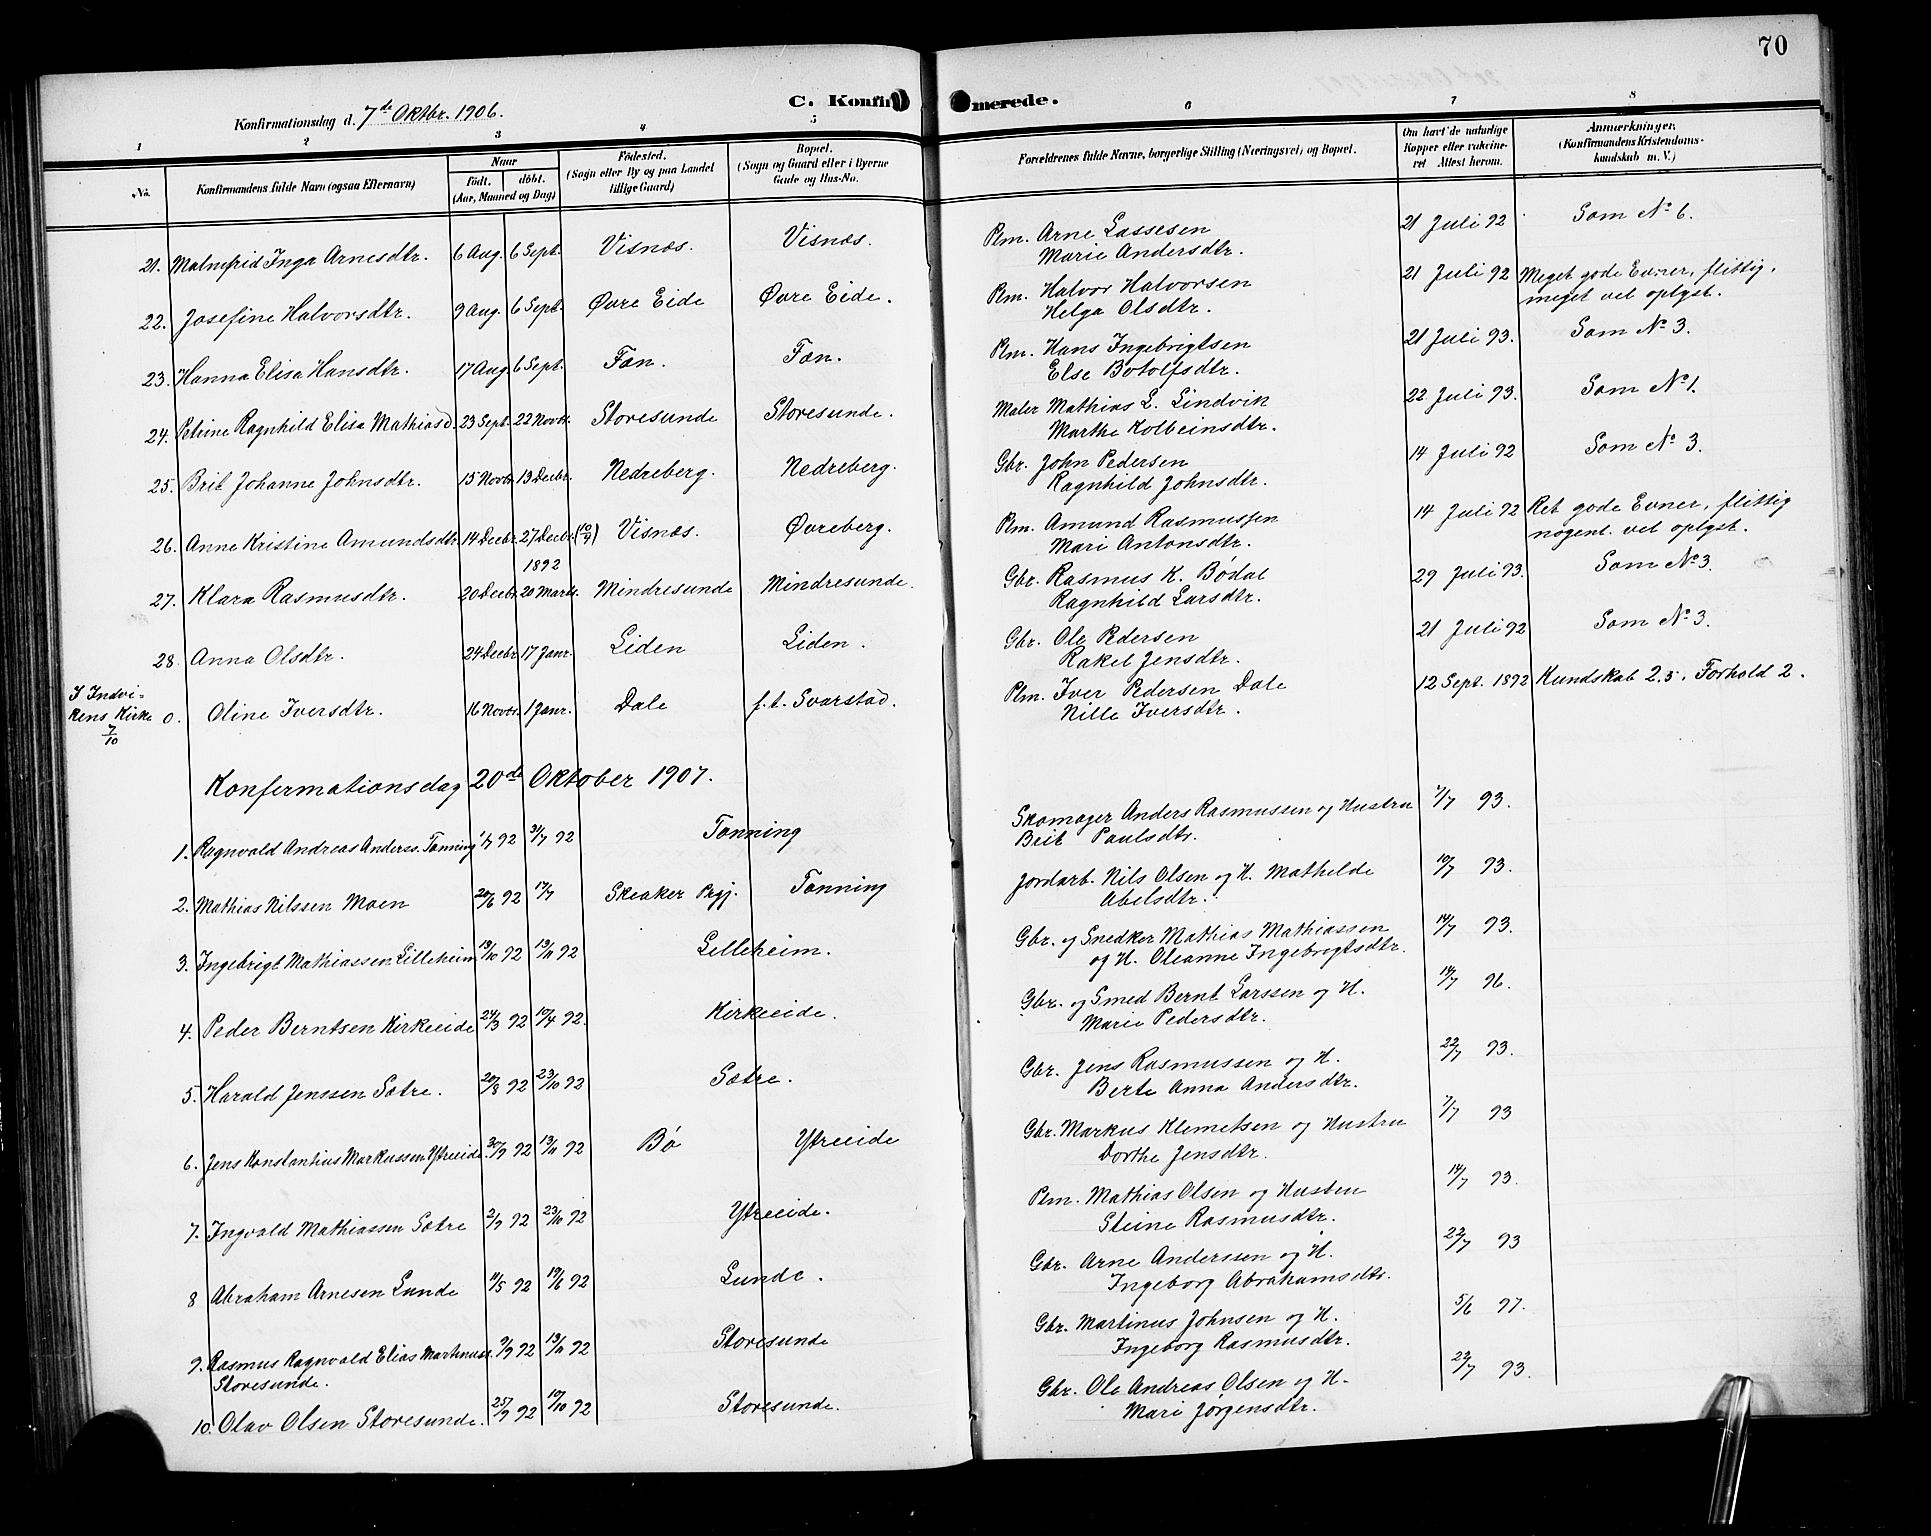 70
Konfirmationsdag d. 7de Oktbr. 1906.
C. Konfir merede.
1 2 3 4 5 6 7 8
No.
Konfirmandens fulde Navn (ogsaa Efternavn)
Naar
Født. døbt.
(Aar, Maaned og Dag)
Fødested.
(Sogn eller By og paa Landet
tillige Gaard)
Bopæl.
(Sogn og Gaard eller i Byerne
Gade og Hus-No.
Forældrenes fulde Navne, borgerlige Stilling (Næringsvei) og Bopæl.
Om havt de naturlige
Kopper eller vakcine-
ret Attest herom.
Anmærkninger.
(Konfirmandens Kristendoms-
kundskab m. V.)
21. Malmfrid Inga Arnesdtr. 6 Aug. 6 Sept. Visnæs. Visnæs. Plm. Arne Lassesen 21 Juli 92 Som No. 6.
Marie Andersdtr.
22. Josefine Halvorsdtr. 9 Aug. 6 Sept. Øvre Eide Øvre Eide. Plm. Halvor Halvorsen 21 Juli 92 Meget gode Evner, flittig,
Helga Olsdtr. meget vel oplyst.
23. Hanna Elisa Hansdtr. 17 Aug 6 Sept. Fon. Fon. Plm. Hans Ingebrigtsen 21 Juli 93. Som No. 3.
Else Botolfsdtr.
24. Petrine Ragnhild Elisa Mathiasd. 23 Sept. 22 Novbr. Storesunde Storesunde. Maler Mathias L. Lindvik 22 Juli 93. Som No. 1.
Marthe Kolbeinsdtr.
25. Brit Johanne Johnsdtr. 15 Novbr. 13 Decbr. Nedreberg. Nedreberg. Gbr. John Pedersen 14 Juli 92 Som No. 3.
Ragnhild Johnsdtr.
26. Anne Kristine Amundsdtr. 14 Decbr. 27 Decbr. (10/9) Visnæs. Øvreberg. Plm. Amund Rasmussen 14 Juli 92 Ret gode Evner, flittig
Mari Antonsdtr. nogent. vel oplyst.
1892
27. Klara Rasmusdtr. 20 Decbr. 20 Marts. Mindresunde Mindresunde. Gbr. Rasmus K. Bødal 29 Juli 93. Som No. 3.
Ragnhild Larsdtr.
28. Anna Olsdtr. 24 Decbr 17 Janr. Liden Liden. Gbr. Ole Pedersen 21 Juli 92 Som No. 3.
Rakel Jensdtr.
I Indvi-
kens Kirke
7/10
0. Oline Iversdtr. 16 Novbr. 1 Janr. Dale f.t. Svarstad. Plm. Iver Pedersen Dale 12 Sept. 1892 Kundskab 2.5. Forhold 2.
Nille Iversdtr.
Konfermationsdag 20de Oktober 1907.
1. Ragnvald Andreas Anderss. Tonning 1/7 92 31/7 92 Tonning Skomager Anders Rasmussen og Hustru 7/7 93.
Brit Paulsdtr.
2. Mathias Nilssen Moen 20/6 92 17/7 Skeaker Prgj. Tonning Jordarb. Nils Olsen og H. Mathelde 10/7 93.
Abelsdtr.
3. Ingebrigt Mathiassen Lilleheim 19/10 92 13/11 92 Lilleheim. Gbr. og Snedker Mathias Mathiassen 14/7 93.
og H. Oleanne Ingebrigtsdtr.
4. Peder Berntsen Kirkeeide 24/3 92 19/4 92. Kirkeeide. Gbr. og Smed Bernt Larssen og H. 14/7 96.
Marie Pedersdtr.
5. Harald Jenssen Sætre. 20/8 92 23/10 92 Sætre. Gbr. Jens Rasmussen og H. 22/7 93.
Berte Anna Andersdtr.
6. Jens Konstantius Markussen Ytreeide. 30/9 92 13/11 92 Bø Ytreeide Gbr. Markus Klemetsen og Hustru 7/7 93
Dorthe Jensdtr.
7. Ingvald Mathiassen Sætre 2/9 92 23/10 92 Ytreeide. Plm. Mathias Olsen og Hustru 14/7 93.
Steine Rasmusdtr.
8 Abraham Arnesen Lunde 11/5 92 19/6 92 Lunde. Gbr. Arne Anderssen og H. 22/7 93
Ingeborg Abrahamsdtr.
9. Rasmus Ragnvald Elias Martinuss. 9/9 92 13/11 92 Storesunde Gbr. Martinus Johnsen og H. 5/6 97.
Storesunde. Ingeborg Rasmusdtr.
10. Olav Olsen Storesunde. 25/9 92 19/10 92 Storesunde. Gbr. Ole Andreas Olsen og H. 22/7 93.
Mari Jørgensdtr.